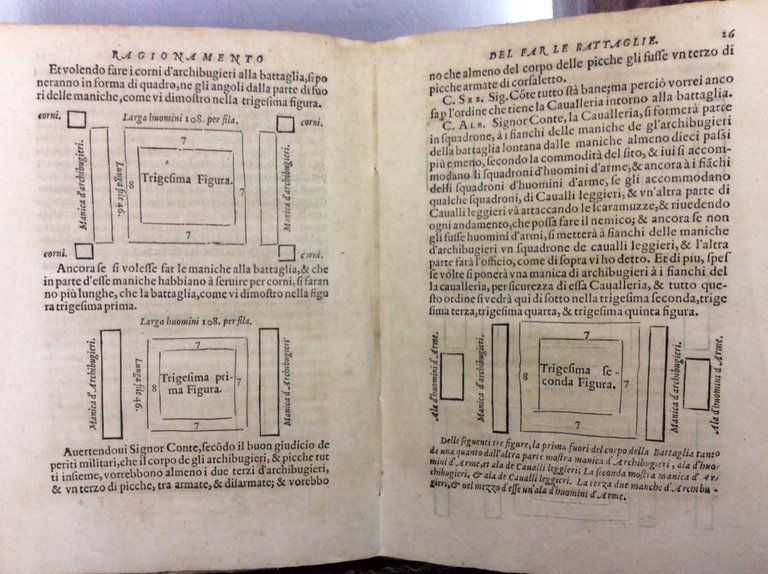 RAGIONAMENTO
Et volendo fare i corni d'archibugieri alla battaglia, si po
neranno in forma di quadro, ne gli angoli dalla parte di fuo
ri delle maniche, come vi dimostro nella trigesima figura.
corni.
Larga huomini 108. per fila.
corni.
Manica d'archibugieri.
Lunga file 46.
7
8
Trigesima Figura.
7
7
Manica d'archibugieri.
corni.
corni.
Ancora se si volesse far le maniche alla battaglia, & che
in parte d'esse maniche habbiano à seruire per corni, si faran
no più lunghe, che la battaglia, come vi dimostro nella figu
ra trigesima prima.
Larga huomini 108. per fila.
Manica d'Archibugieri.
Lunga file 46.
7
8
Trigesima pri-
ma Figura.
7
7
Manica d'Archibugieri.
Auertendoui Signor Conte, secódo il buon giudicio de
periti militari, che il corpo de gli archibugieri, & picche tut
ti insieme, vorrebbono almeno i due terzi d'archibugieri,
& vn terzo di picche, tra armate, & disarmate; & vorebbo
DEL FAR LE BATTAGLIE.
26
no che almeno del corpo delle picche gli fusse vn terzo di
picche armate di corsaletto.
C. SEB. Sig. Cóte tutto stà bane; ma perciò vorrei anco
sap l'ordine che tiene la Caualleria intorno alla battaglia.
C. ALB. Signor Conte, la Caualleria, si formerà parte
in squadrone, à i fianchi delle maniche de gl'archibugieri
della battaglia lontana dalle maniche almeno dieci passi
più e meno, secondo la commodità del sito, & iui si accom-
modano li squadroni d'huomini d'arme, & ancora à i fiáchi
delli squadroni d'huomini d'arme, se gli accommodano
qualche squadroni, di Caualli leggieri, & vn'altra parte di
Caualli leggieri và attaccando le scaramuzze, & riuedendo
ogni andamento, che possa fare il nemico; & ancora se non
gli fusse huomini d'armi, si metterà à fianchi delle maniche
d'archibugieri vn squadrone de caualli leggieri, & l'altra
parte farà l'officio, come di sopra vi ho detto. Et di piu, spes
se vólte si ponerà vna manica di archibugieri à i fianchi del
la caualleria, per sicurezza di essa Caualleria, & tutto que-
sto ordine si vedrà qui di sotto nella trigesima seconda, trige
sima terza, trigesima quarta, & trigesima quinta figura.
Ala d'huomini d'Arme.
Manica d'Archibugieri.
7
8
Trigesima se-
conda Figura.
7
7
Manica d'Archibugieri.
Ala d'huomini d'Arme.
Delle siguenti tre figure, la prima fuori del corpo della Battaglia tanto
da una quanto dall'altra parte mostra manica d'Archibugieri, ala d'huo-
mini d'Arme, et ala de Caualli leggieri. La seconda mostra manica d'Ar
chibugieri, & ala de Caualli leggieri. La terza due maniche d'Archibu-
gieri, & nel mezzo d'esse un'ala d'huomini d'Arme.